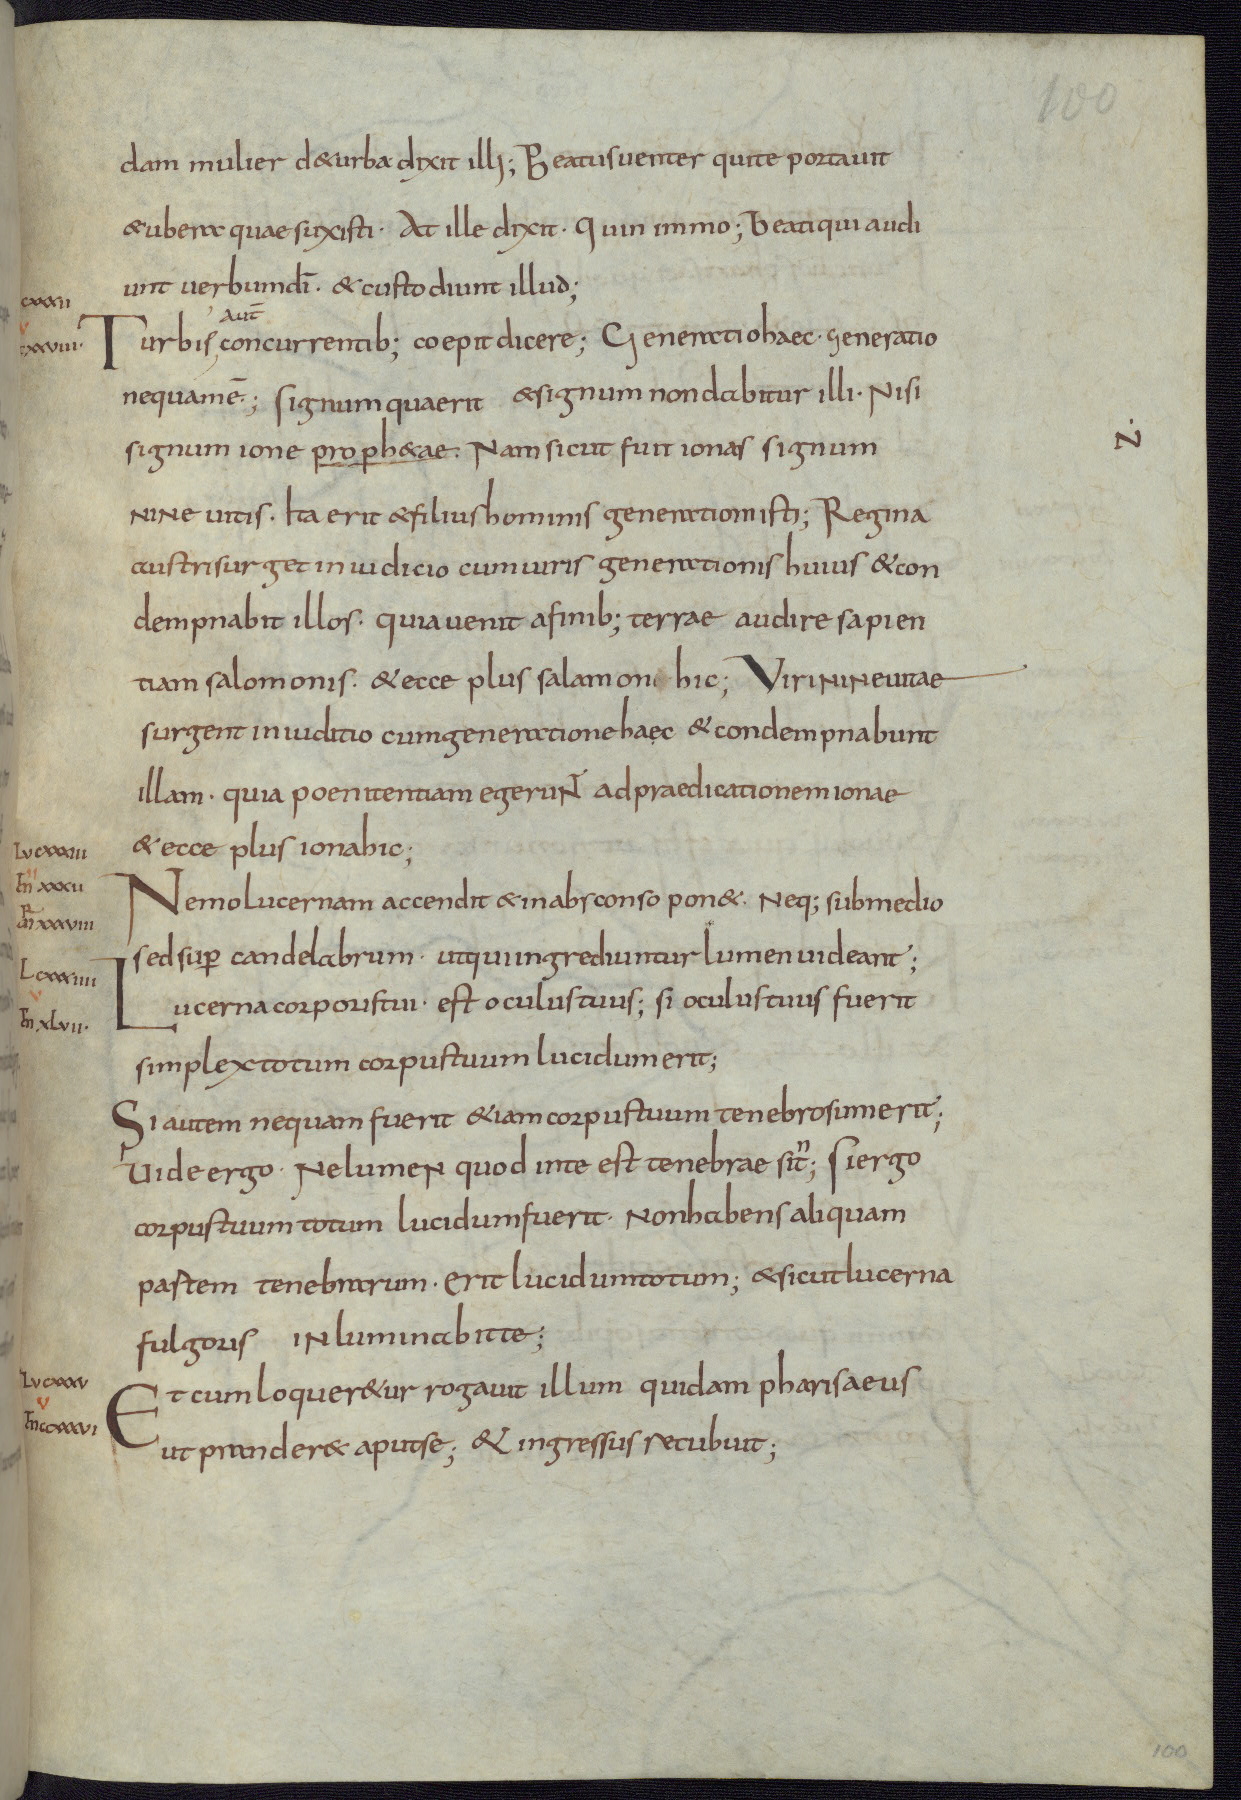 100
dam mulier d&urba dixit illi; Beatus uenter qui te portauit
& ubera quae suxisti. At ille dixit. Quin immo; Beati qui audi
unt uerbum dī. & custodiunt illud;
cxxxii
cxxviii.
aut̄
Turbis, concurrentib; coepit dicere; Generatio haec. generatio
nequam ē.; signum quaerit & signum non dabitur illi. Nisi
signum ione proph&ae. Nam sicut fuit ionas signum
.N.
nineuitis. Ita erit & filius hominis generationi isti; Regina
austri surget in iudicio cum uiris generationis huius & con
dempnabit illos. quia uenit a finib; terrae audire sapien
tiam salomonis. & ecce plus salamon hic; Viri nineuitae
surgent in iuditio cum generatione haec & condempnabunt
illam. quia poenitentiam egerunt ad praedicationem ionae
& ecce plus iona hic;
Lu cxxxiii
xxxii
xxxviii
Nemo lucernam accendit & in absconso pon&. Neq; sub medio
sed sup̄ candelabrum. ut qui ingrediuntur lumen uideant;
L cxxxiiii
xLvii.
Lucerna corporis tui. est oculus tuus; si oculus tuus fuerit
simplex totum corpus tuum lucidum erit;
Si autem nequam fuerit &iam corpus tuum tenebrosum erit;
Uide ergo. Ne lumen quod in te est tenebrae sitⁿ; Si ergo
corpus tuum totum lucidum fuerit. Non habens aliquam
pastem tenebrarum. erit lucidum totum; & sicut lucerna
fulgoris inluminabit te;
Lu cxxxv
ccxxxvi
Et cum loquer&ur rogauit illum quidam pharisaeus
ut prander& aput se; & ingressus recubuit;
100